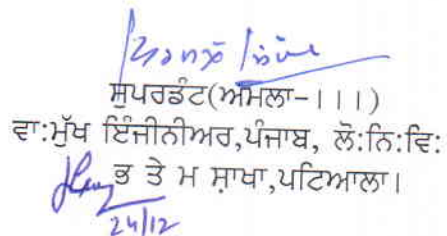 ਸੁਪਰਡੰਟ(ਅਮਲਾ-।।।)
ਵਾ:ਮੁੱਖ ਇੰਜੀਨੀਅਰ,ਪੰਜਾਬ, ਲੋ:ਨਿ:ਵਿ:
ਭ ਤੇ ਮ ਸ਼ਾਖਾ,ਪਟਿਆਲਾ।
24/12